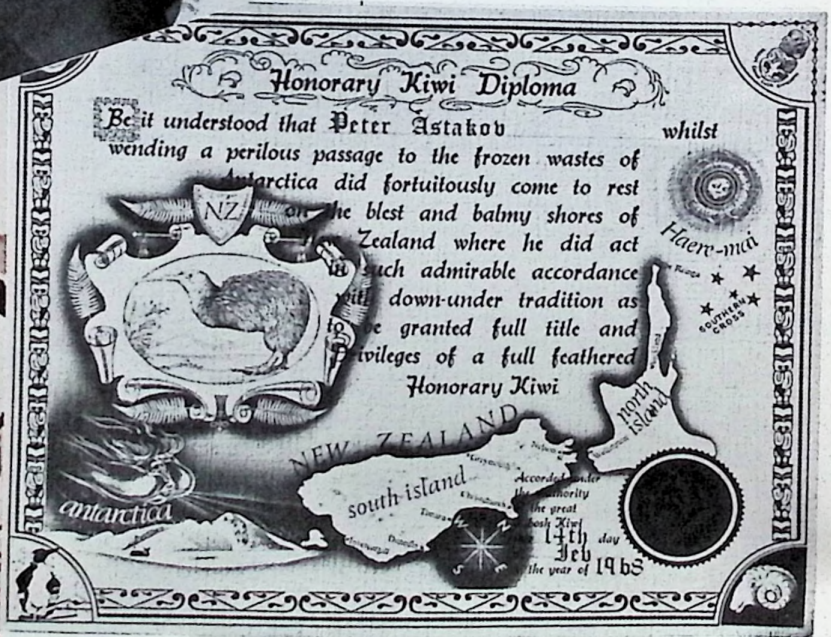 Honorary Kiwi Diploma
Be it understood that Peter Astakov whilst
wending a perilous passage to the frozen wastes of
Antarctica did fortuitously come to rest
on the blest and balmy shores of
Zealand where he did act
in such admirable accordance
with down-under tradition as
to be granted full title and
Privileges of a full feathered
Honorary Kiwi
NZ
Haere-mai
SOUTHERN CROSS
north
island
NEW ZEALAND
south island
antarctica
Accorded under
the authority
the great
Kiwi
14th day
Feb
the year of 1968
N
W
S
E